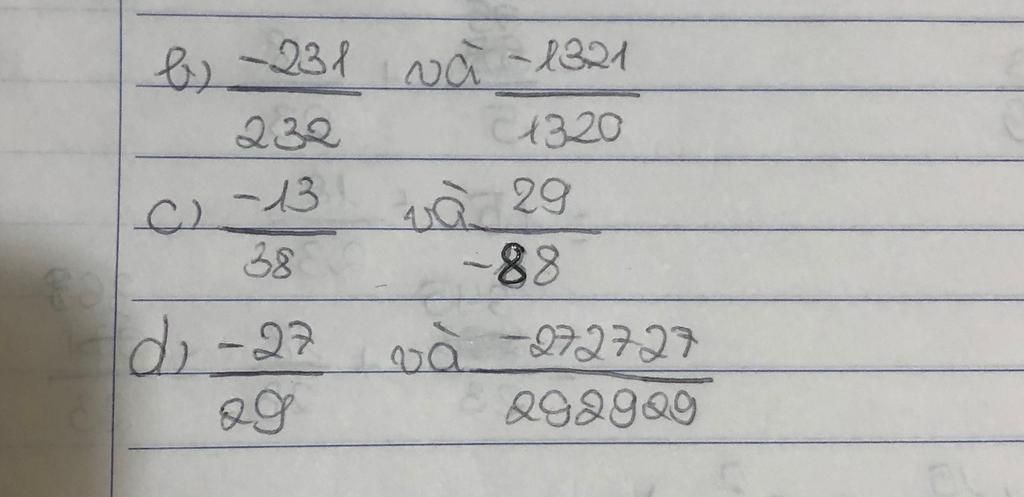 b) -231/232 và -1321/1320
c) -13/38 và 29/-88
d) -27/29 và -272727/292929